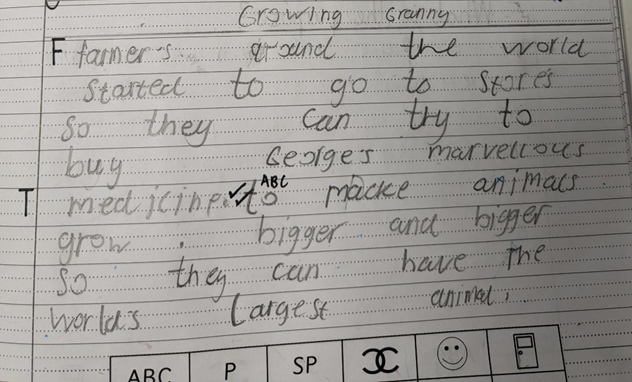 Growing Granny
F farmer's around the world
started to go to stores
so they can try to
buy George's marvellous
ABC
T medicine. to macke animals
grow. bigger and bigger
so they can have the
world's largest animal.
ABC P SP